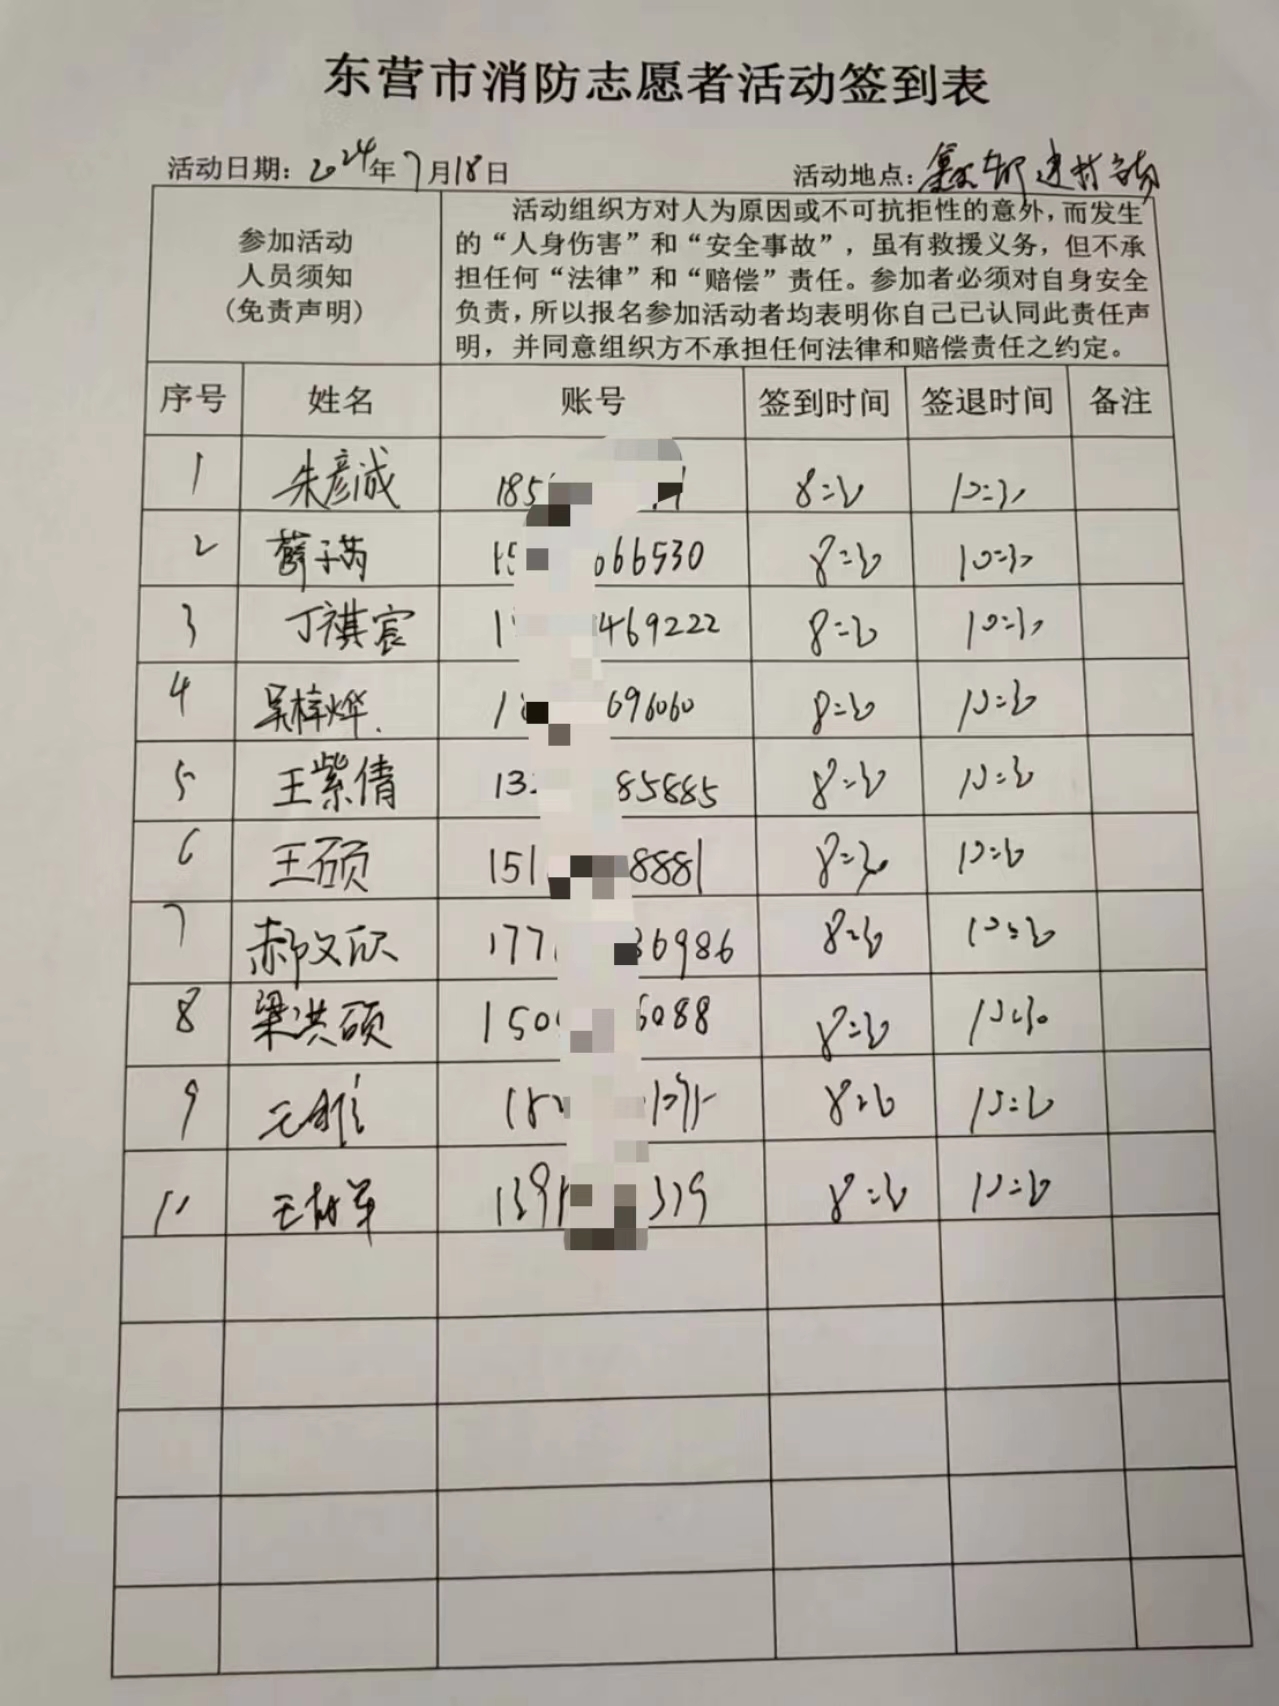 东营市消防志愿者活动签到表
活动日期：2024年7月18日 活动地点：鑫都建材市场
参加活动
人员须知
(免责声明)
活动组织方对人为原因或不可抗拒性的意外，而发生
的“人身伤害”和“安全事故”，虽有救援义务，但不承
担任何“法律”和“赔偿”责任。参加者必须对自身安全
负责，所以报名参加活动者均表明你自己已认同此责任声
明，并同意组织方不承担任何法律和赔偿责任之约定。
序号 姓名 账号 签到时间 签退时间 备注
1 朱彦诚 185 8:30 10:30
2 薛子芮 15 666530 8:30 10:30
3 丁祺宸 1 469222 8:30 10:30
4 吴梓烨 1 696060 8:30 10:30
5 王紫倩 13 85885 8:30 10:30
6 王硕 151 8881 8:30 10:30
7 郝文欣 177 36986 8:30 10:30
8 梁洪硕 150 6088 8:30 10:30
9 8:30 10:30
10 王树军 139 379 8:30 10:30